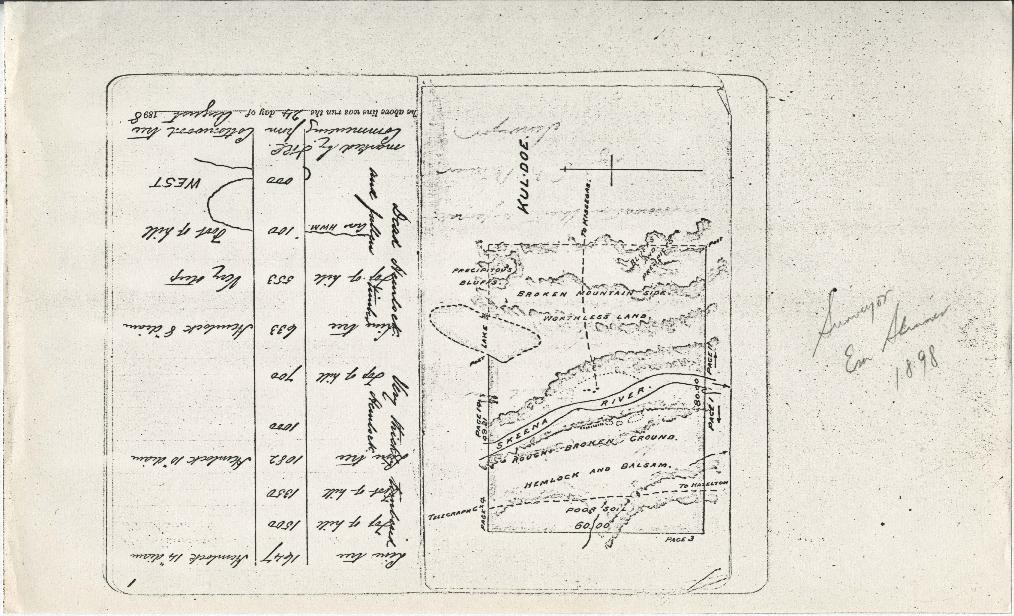 1
Line tree 1647 Hemlock 14" diam
Top of hill 1500
Foot of hill 1350
Line tree 1082 Hemlock 10" diam
1000
Top of hill 700
Line tree 633 Hemlock 8" diam
Top of hill 553 Very steep
100 Foot of hill
HWM.
000 WEST
Very thickly timbered
Hemlock
Dead Hemlock
and fallen
timber
marked by
Commencing from Cottonwood tree
The above line was run the 24 day of August 1898
KUL-DOE.
TO KISGEGAS.
PRECIPITOUS
BLUFFS.
BLUFFS
AND
PRECIPICE
BROKEN MOUNTAIN SIDE
WORTHLESS LAND
LAKE
POST
POST
PAGE 11
PAGE 1
80.00
SKEENA RIVER.
ROUGH BROKEN GROUND.
HEMLOCK AND BALSAM.
TO HAZELTON
TELEGRAPH
POOR SOIL
60.00
PAGE 3
Surveyor
Em Skinner
1898